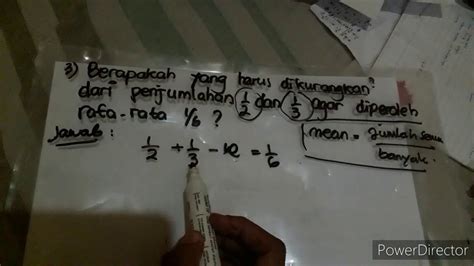 3) Berapakah yang harus dikurangkan
dari penjumlahan 1/2 dan 1/3 agar diperoleh
rata-rata 1/6 ?
mean = jumlah semua
banyak
Jawab :
1/2 + 1/3 - x = 1/6
PowerDirector